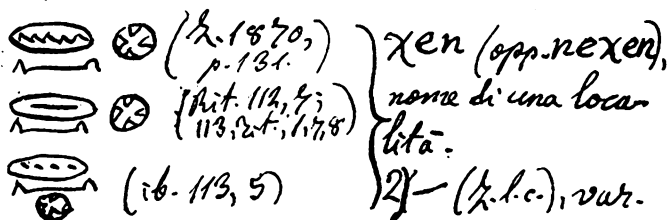 (Z. 1870,
p. 131.)
(Rit. 112, 7;
113, Rit., 1, 7, 8)
(ib. 113, 5)
χen (opp. neχen),
nome di una loca-
lità.
2) — (Z. l. c.), var.